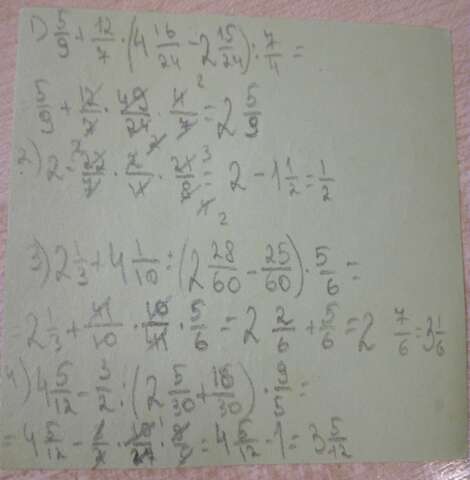 1) 5/9 + 12/7 · (4 16/24 - 2 15/24) : 7/4 =
5/9 + 12/7 · 49/24 · 4/7 = 2 5/9
2) 2 - · · = 2 - 1 1/2 = 1/2
3) 2 1/3 + 4 1/10 : (2 28/60 - 25/60) · 5/6 =
2 1/3 + 41/10 · 10/41 · 5/6 = 2 2/6 + 5/6 = 2 7/6 = 3 1/6
4) 4 5/12 - 3/2 : (2 5/30 + 16/30) · 9/5 =
= 4 5/12 - · · = 4 5/12 - 1 = 3 5/12